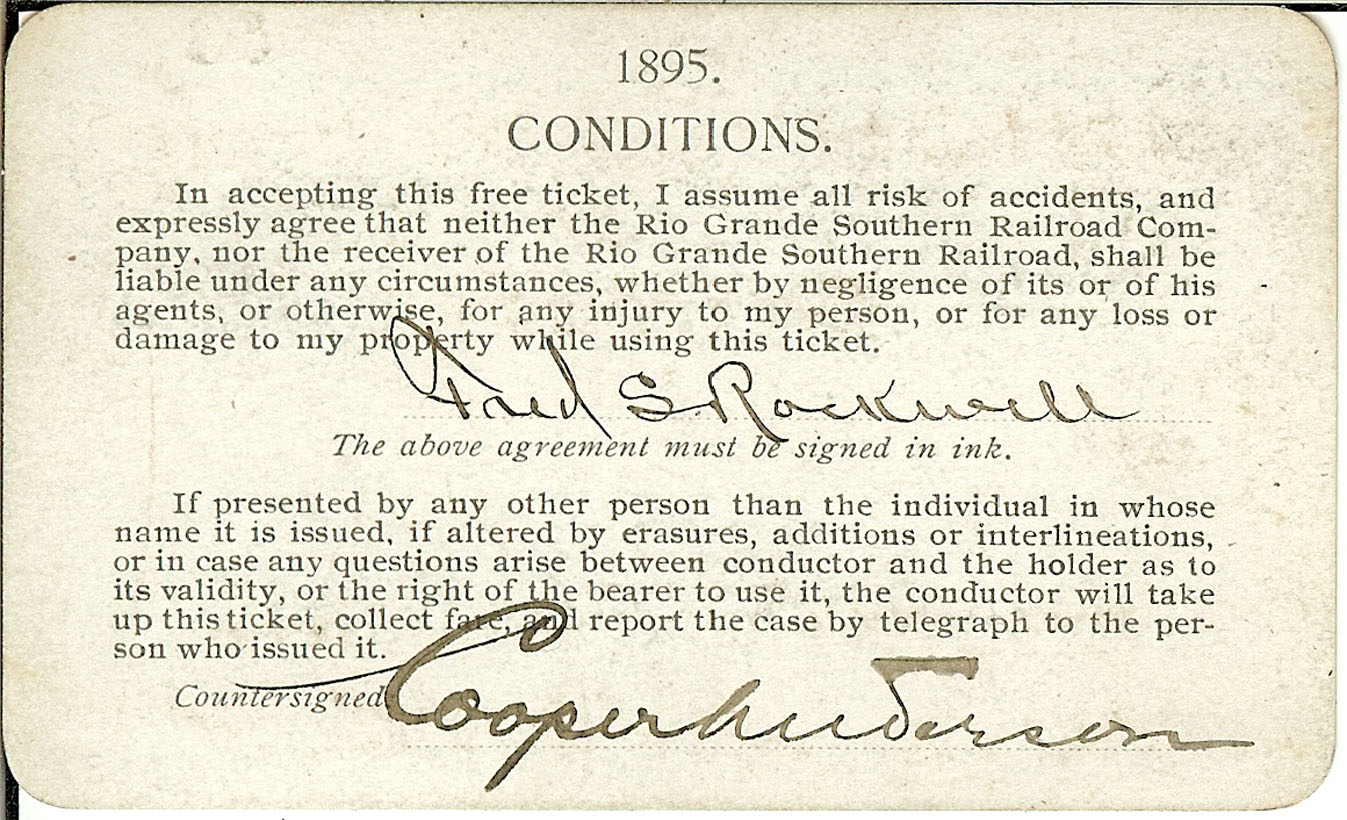 1895.
CONDITIONS.
In accepting this free ticket, I assume all risk of accidents, and
expressly agree that neither the Rio Grande Southern Railroad Com-
pany, nor the receiver of the Rio Grande Southern Railroad, shall be
liable under any circumstances, whether by negligence of its or of his
agents, or otherwise, for any injury to my person, or for any loss or
damage to my property while using this ticket.
Fred S Rockwell
The above agreement must be signed in ink.
If presented by any other person than the individual in whose
name it is issued, if altered by erasures, additions or interlineations,
or in case any questions arise between conductor and the holder as to
its validity, or the right of the bearer to use it, the conductor will take
up this ticket, collect fare, and report the case by telegraph to the per-
son who issued it.
Countersigned Cooper Anderson